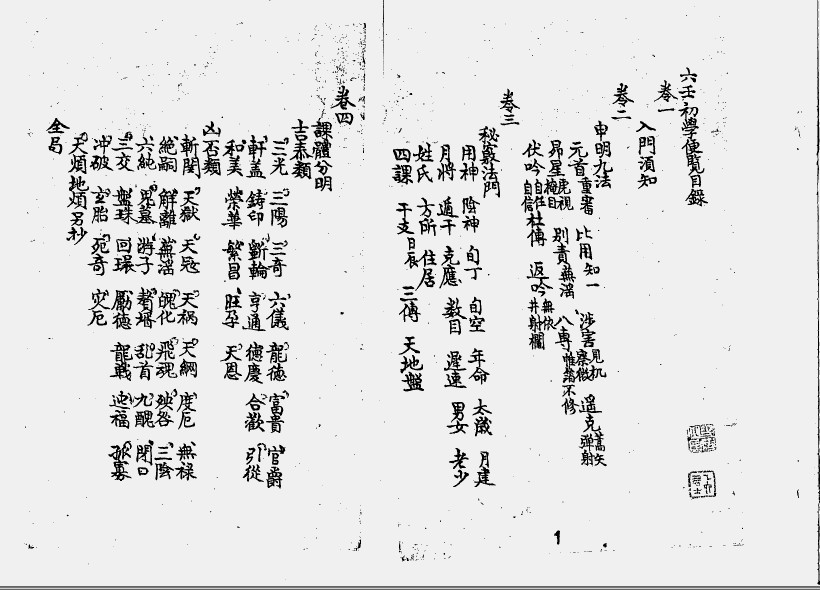 六壬初學便覽目錄
卷一
入門須知
卷二
申明九法
元首 重審 比用 知一 涉害 見机 察微 遥克 蒿矢 弹射
昴星 虎視 掩目 别責 蕪淫 八專 帷薄不修
伏吟 自任 自信 杜傳 返吟 無依 井射欄
卷三
秘竅法門
用神 陰神 旬丁 旬空 年命 太歲 月建
月將 遁干 克應 数目 遲速 男女 老少
姓氏 方所 住居
四課 干支日辰 三傳 天地盤
卷四
課體分明
吉泰類
三光 三陽 三奇 六儀 龍德 富貴 官爵
軒盖 鋳印 斵輪 亨通 德慶 合歡 引從
和美 榮華 繁昌 旺孕 天恩
凶否類
斬関 天獄 天冦 天祸 天網 度厄 無禄
絶嗣 解離 蕪淫 魄化 飛魂 殃咎 三陰
六純 鬼墓 游子 贅壻 乱首 九醜 閉口
三交 盤珠 回環 勵德 龍戰 迍福 孤寡
冲破 玄胎 死奇 灾厄
天煩地煩另抄
全局
1